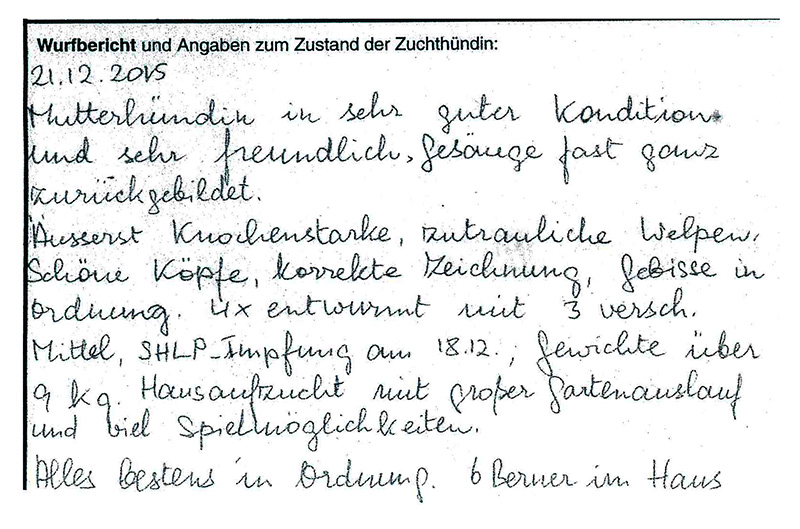 Wurfbericht und Angaben zum Zustand der Zuchthündin:
21.12.2015
Mutterhündin in sehr guter Kondition
und sehr freundlich, Gesäuge fast ganz
zurückgebildet.
Äusserst Knochenstarke, zutrauliche Welpen.
Schöne Köpfe, korrekte Zeichnung, Gebisse in
Ordnung. 4x entwurmt mit 3 versch.
Mittel, SHLP-Impfung am 18.12., Gewichte über
9 kg. Hausaufzucht mit großer Gartenauslauf
und viel Spielmöglichkeiten.
Alles bestens in Ordnung. 6 Berner im Haus